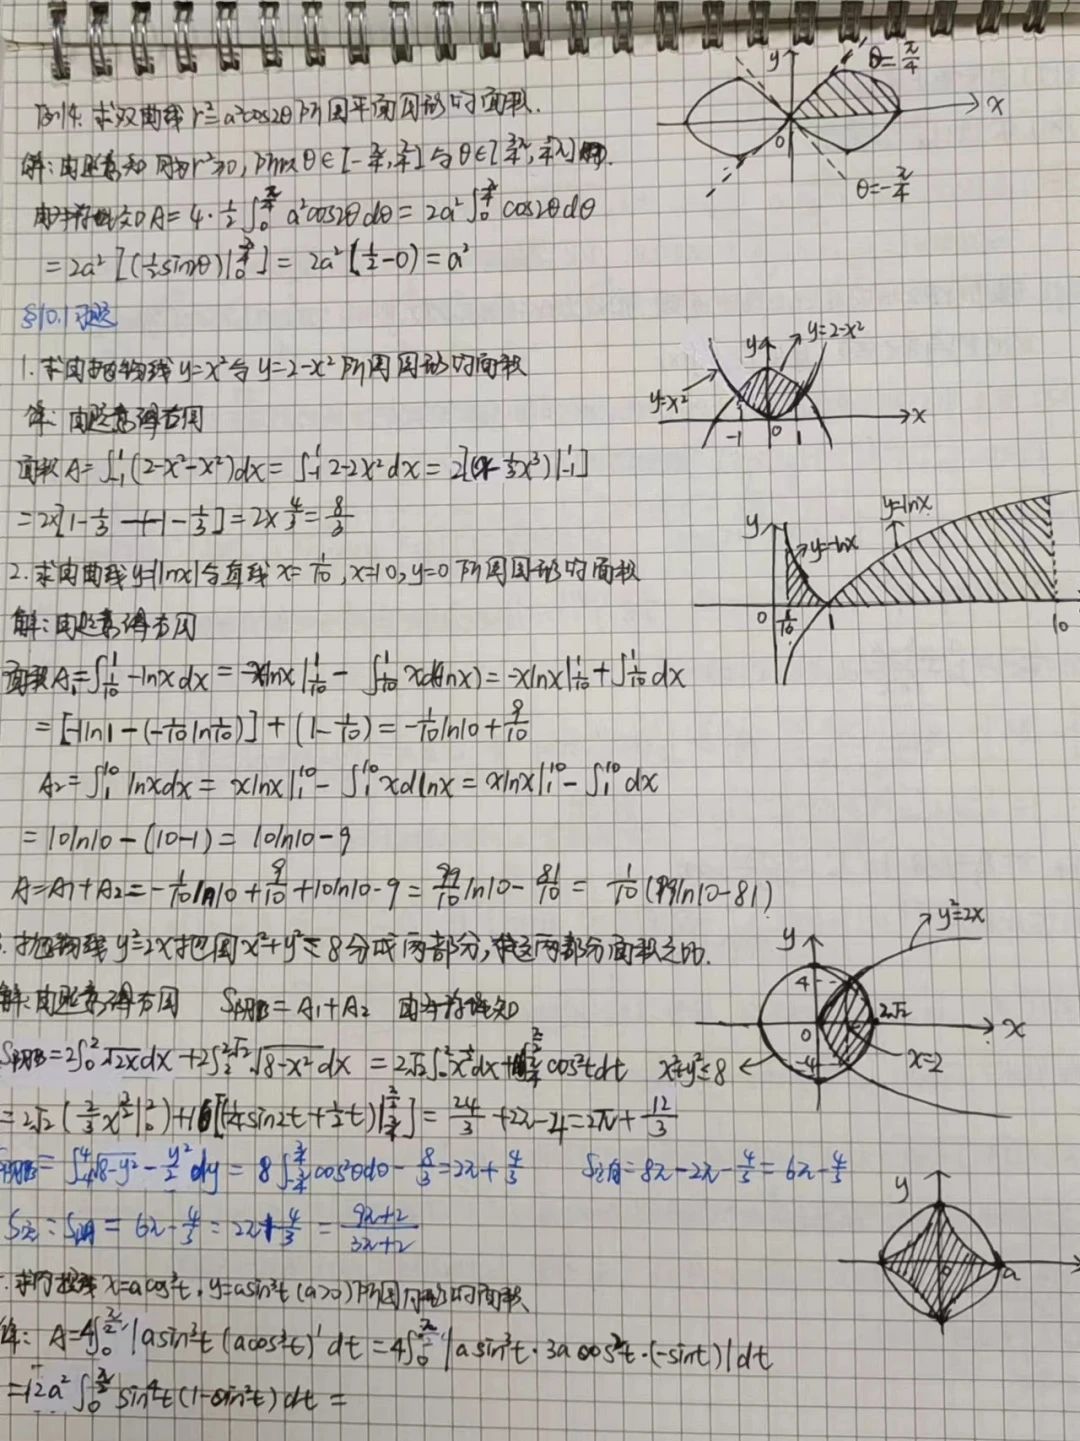 例14. 求双曲线 r²=a²cos2θ 所围平面图形的面积.
解:由题意知 r²≥0, θ∈[-π/4, π/4] 与 θ∈[3π/4, 5π/4]
由对称性知 A=4·1/2∫₀^(π/4) a²cos2θdθ = 2a²∫₀^(π/4) cos2θdθ
=2a²[(1/2 sin2θ)|₀^(π/4)] = 2a²[1/2-0) = a²
y
θ=π/4
x
0
θ=-π/4
§10.1习题
1. 求由抛物线 y=x² 与 y=2-x² 所围图形的面积
解: 由题意得右图
面积 A=∫₋₁¹(2-x²-x²)dx = ∫₋₁¹ 2-2x²dx = 2[(x-1/3x³)|₋₁¹]
=2×[1-1/3-(-1-1/3] = 2×4/3 = 8/3
y
y=2-x²
y=x²
-1 0 1 x
2. 求由曲线 y=|lnx| 与直线 x=1/10, x=10, y=0 所围图形的面积
解:由题意得右图
面积 A₁=∫_(1/10)^1 -lnxdx = -xlnx|_(1/10)^1 - ∫_(1/10)^1 xd(-lnx) = -xlnx|_(1/10)^1 + ∫_(1/10)^1 dx
=[-1ln1-(-1/10 ln1/10)] + (1-1/10) = -1/10 ln10 + 9/10
A₂=∫₁¹⁰ lnxdx = xlnx|₁¹⁰ - ∫₁¹⁰ xdlnx = xlnx|₁¹⁰ - ∫₁¹⁰ dx
= 10ln10-(10-1) = 10ln10-9
A=A₁+A₂=-1/10 ln10+9/10+10ln10-9 = 99/10 ln10 - 81/10 = 1/10(99ln10-81)
y
y=-lnx
y=lnx
0 1/10 1 10
抛物线 y²=2x 把圆 x²+y²≤8 分成两部分,求这两部分面积之比.
解:由题意得右图 S阴=A₁+A₂ 由对称性知
S阴=2∫₀²√2xdx+2∫₂^(2√2)√8-x²dx = 2√2∫₀²x^(1/2)dx+16∫_(π/4)^(π/2) cos²tdt
=2√2(2/3x^(3/2)|₀²)+16[(1/4sin2t+1/2t)|_(π/4)^(π/2)] = 24/3+2π-4=2π+12/3
S阴=∫₋₄⁴√8-y²-y²/2 dy = 8∫_(-π/4)^(π/4) cos²θdθ-8/3=2π+4/3 S空白=8π-2π-4/3=6π-4/3
S空:S阴 = 6π-4/3 = 2π+4/3 = 9π+2/3π+2
y
y²=2x
4
2√2
0
x
-4
x=2
x²+y²≤8
求内摆线 x=acos³t, y=asin³t(a>0)所围图形的面积
解: A=4∫₀^(π/2)|asin³t(acos³t)'dt = 4∫₀^(π/2)|asin³t·3acos²t·(-sint)|dt
=12a²∫₀^(π/2) sin⁴t(1-sin²t)dt =
y
0
a